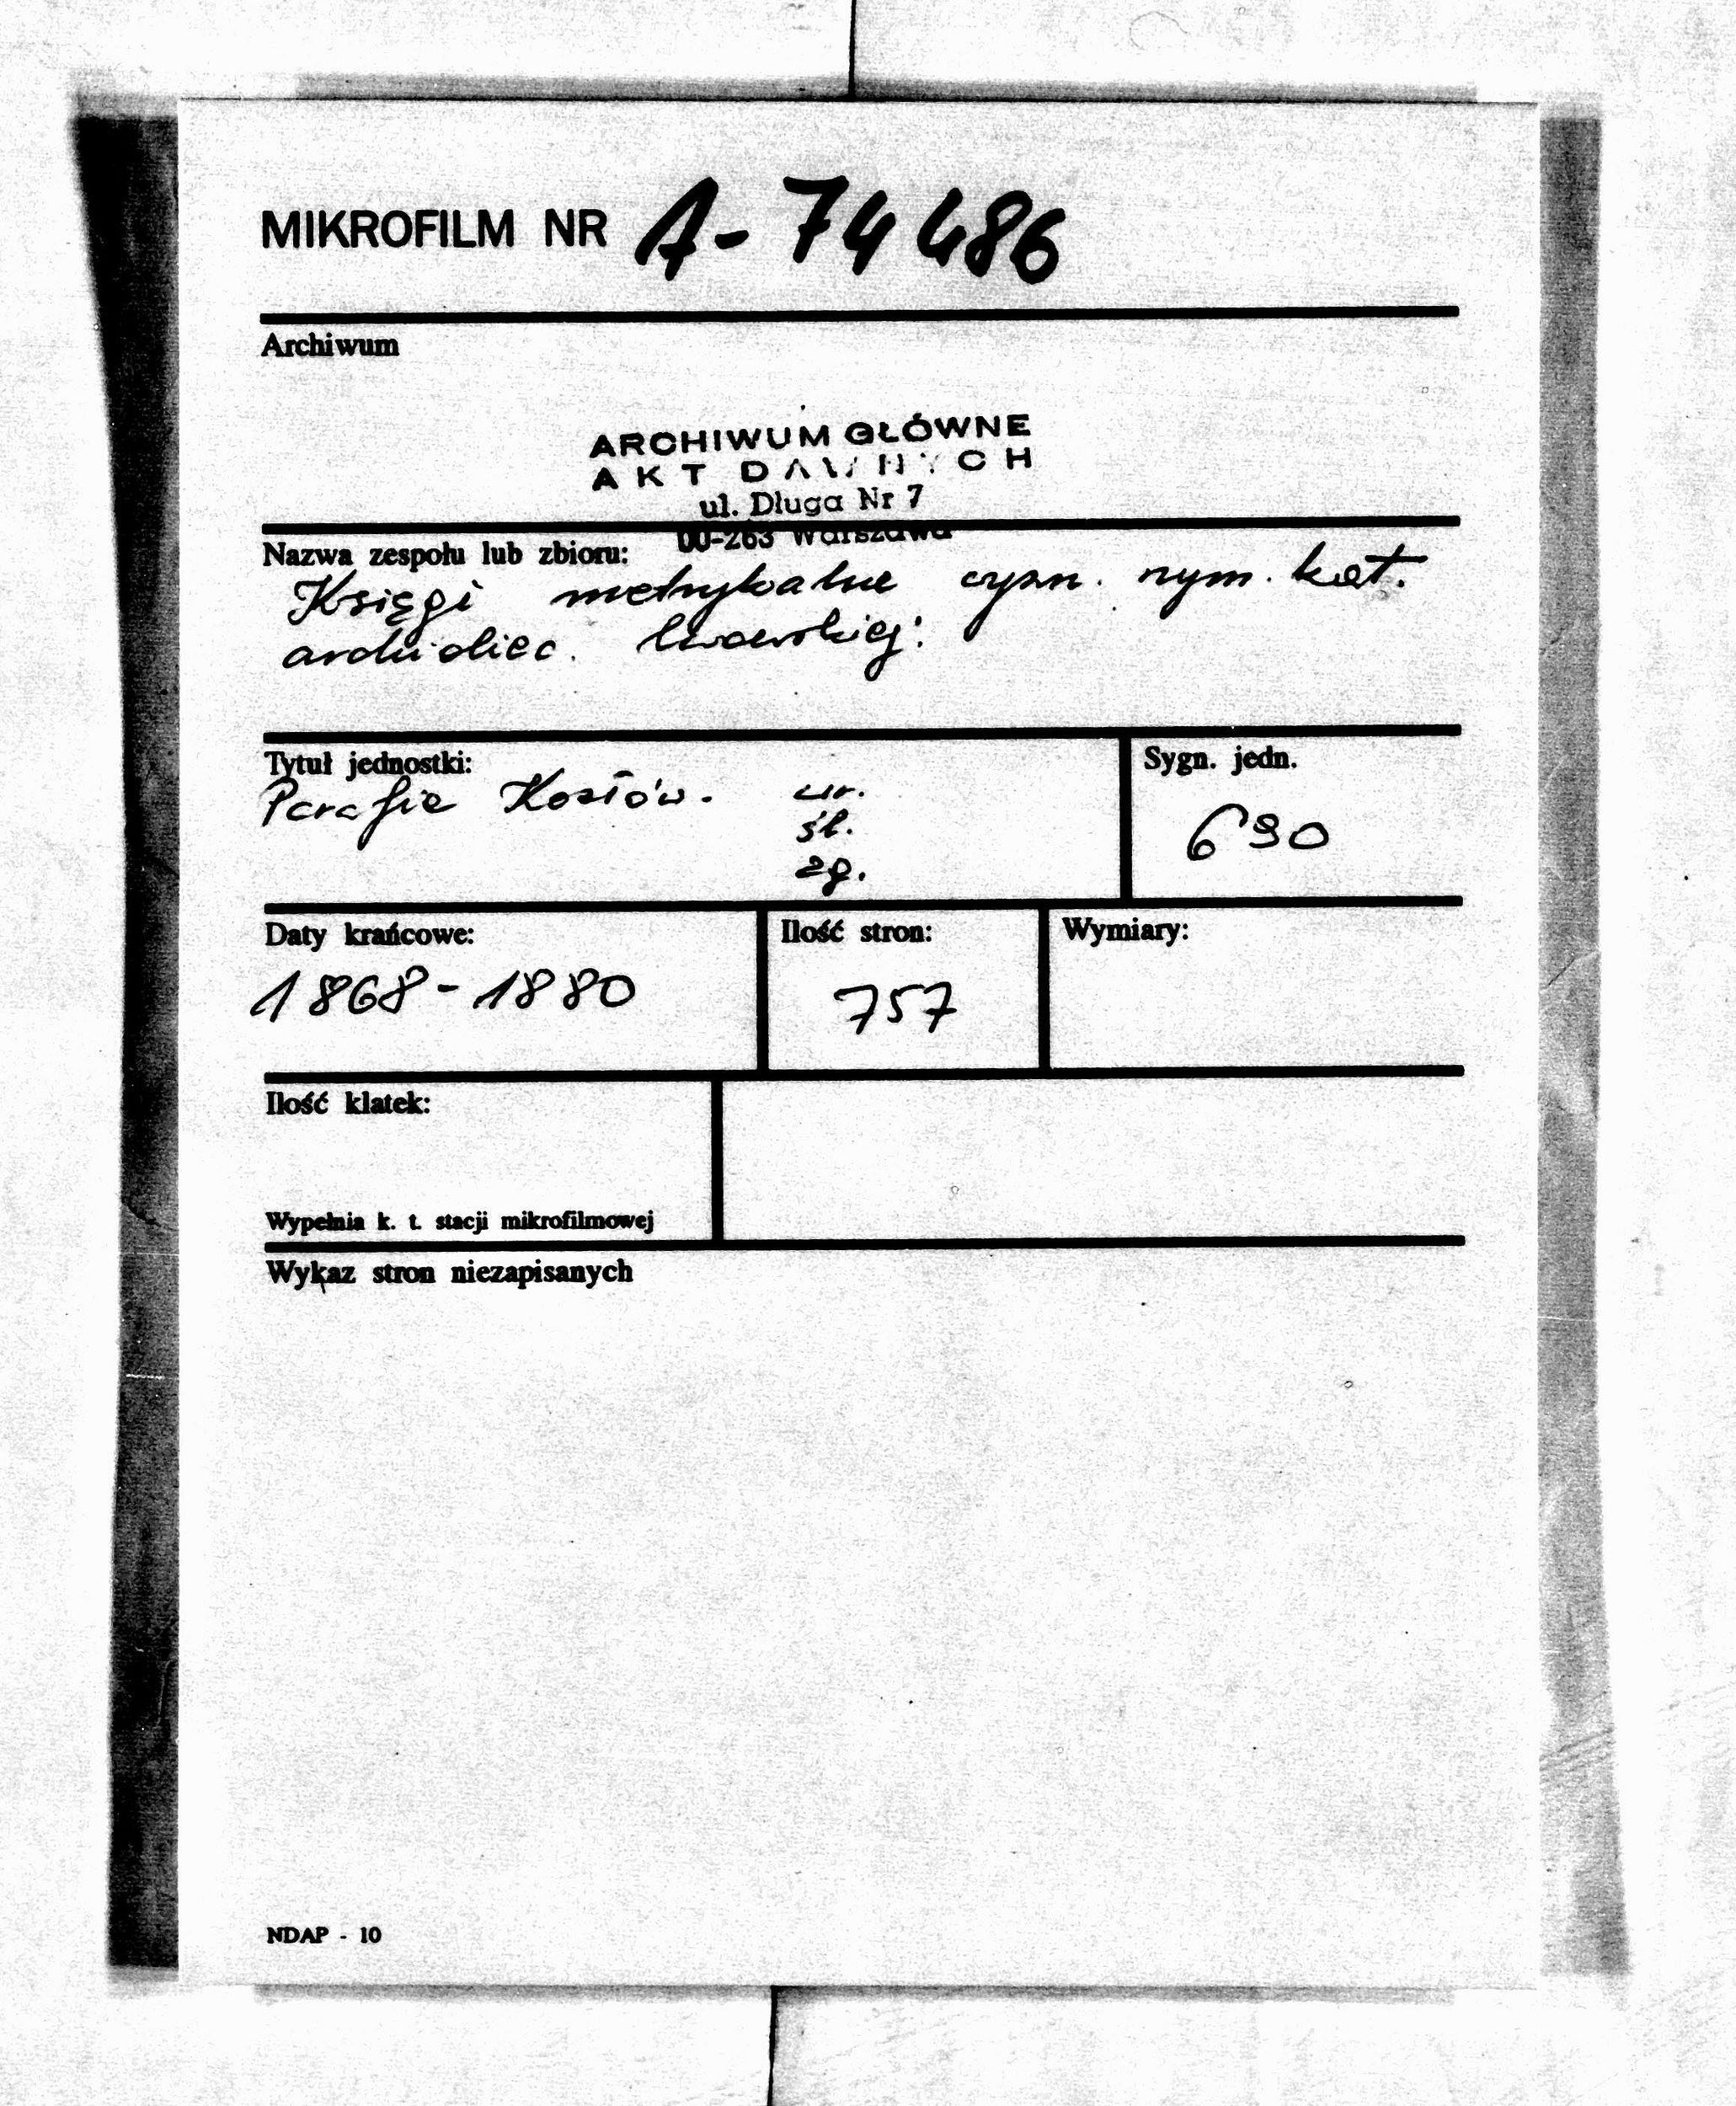 MIKROFILM NR A-74486
Archiwum
ARCHIWUM GŁÓWNE
AKT DAWNYCH
ul. Długa Nr 7
00-263 Warszawa
Nazwa zespołu lub zbioru:
Księgi metrykalne rzym. kat.
archidiec. lwowskiej:
Tytuł jednostki:
Parafia Kozłów. ur.
śl.
zg.
Sygn. jedn.
690
Daty krańcowe:
1868-1880
Ilość stron:
757
Wymiary:
Ilość klatek:
Wypełnia k. t. stacji mikrofilmowej
Wykaz stron niezapisanych
NDAP - 10